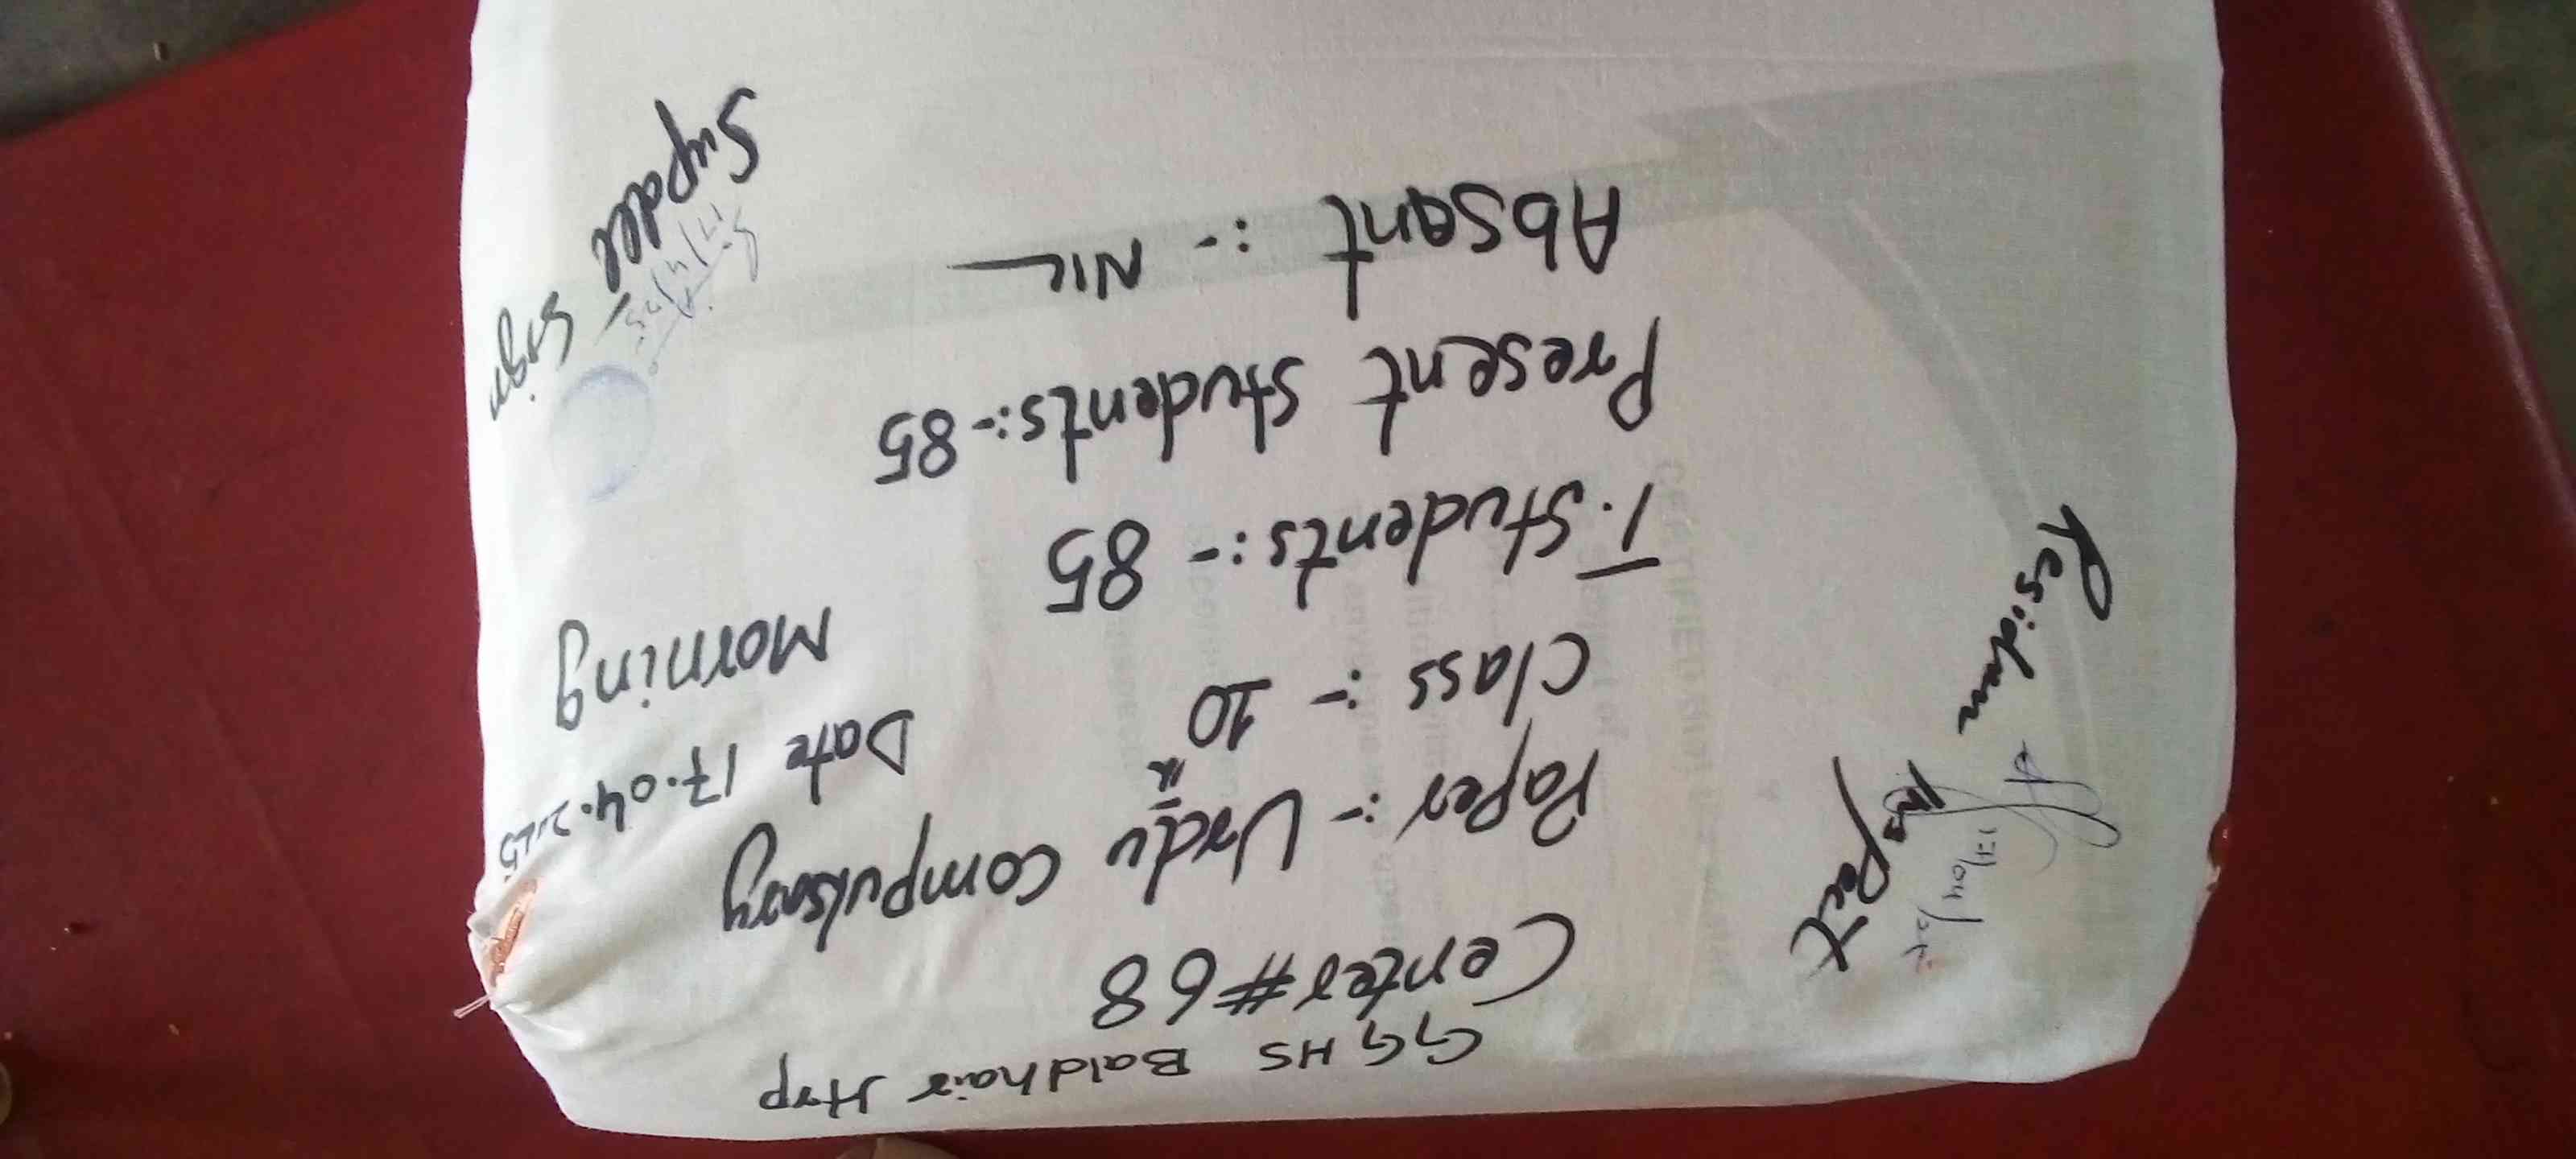 GGHS Baldhair Hrp
Center #68
Paper :- Urdu Compulsory
Date 17.04.2025
Morning
Class :- 10th
T. Students :- 85
Present Students :- 85
Absant :- NIL
Supdee
Sign
17/4/25
Residen
Inspect
17/04/25